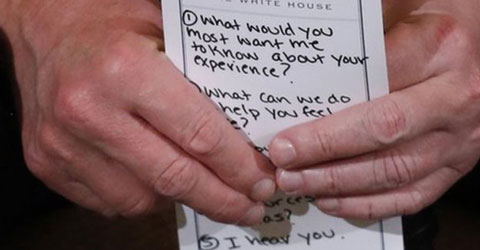 WHITE HOUSE
① What would you
most want me
to know about your
experience?
What can we do
help you feel
?
?
⑤ I hear you.